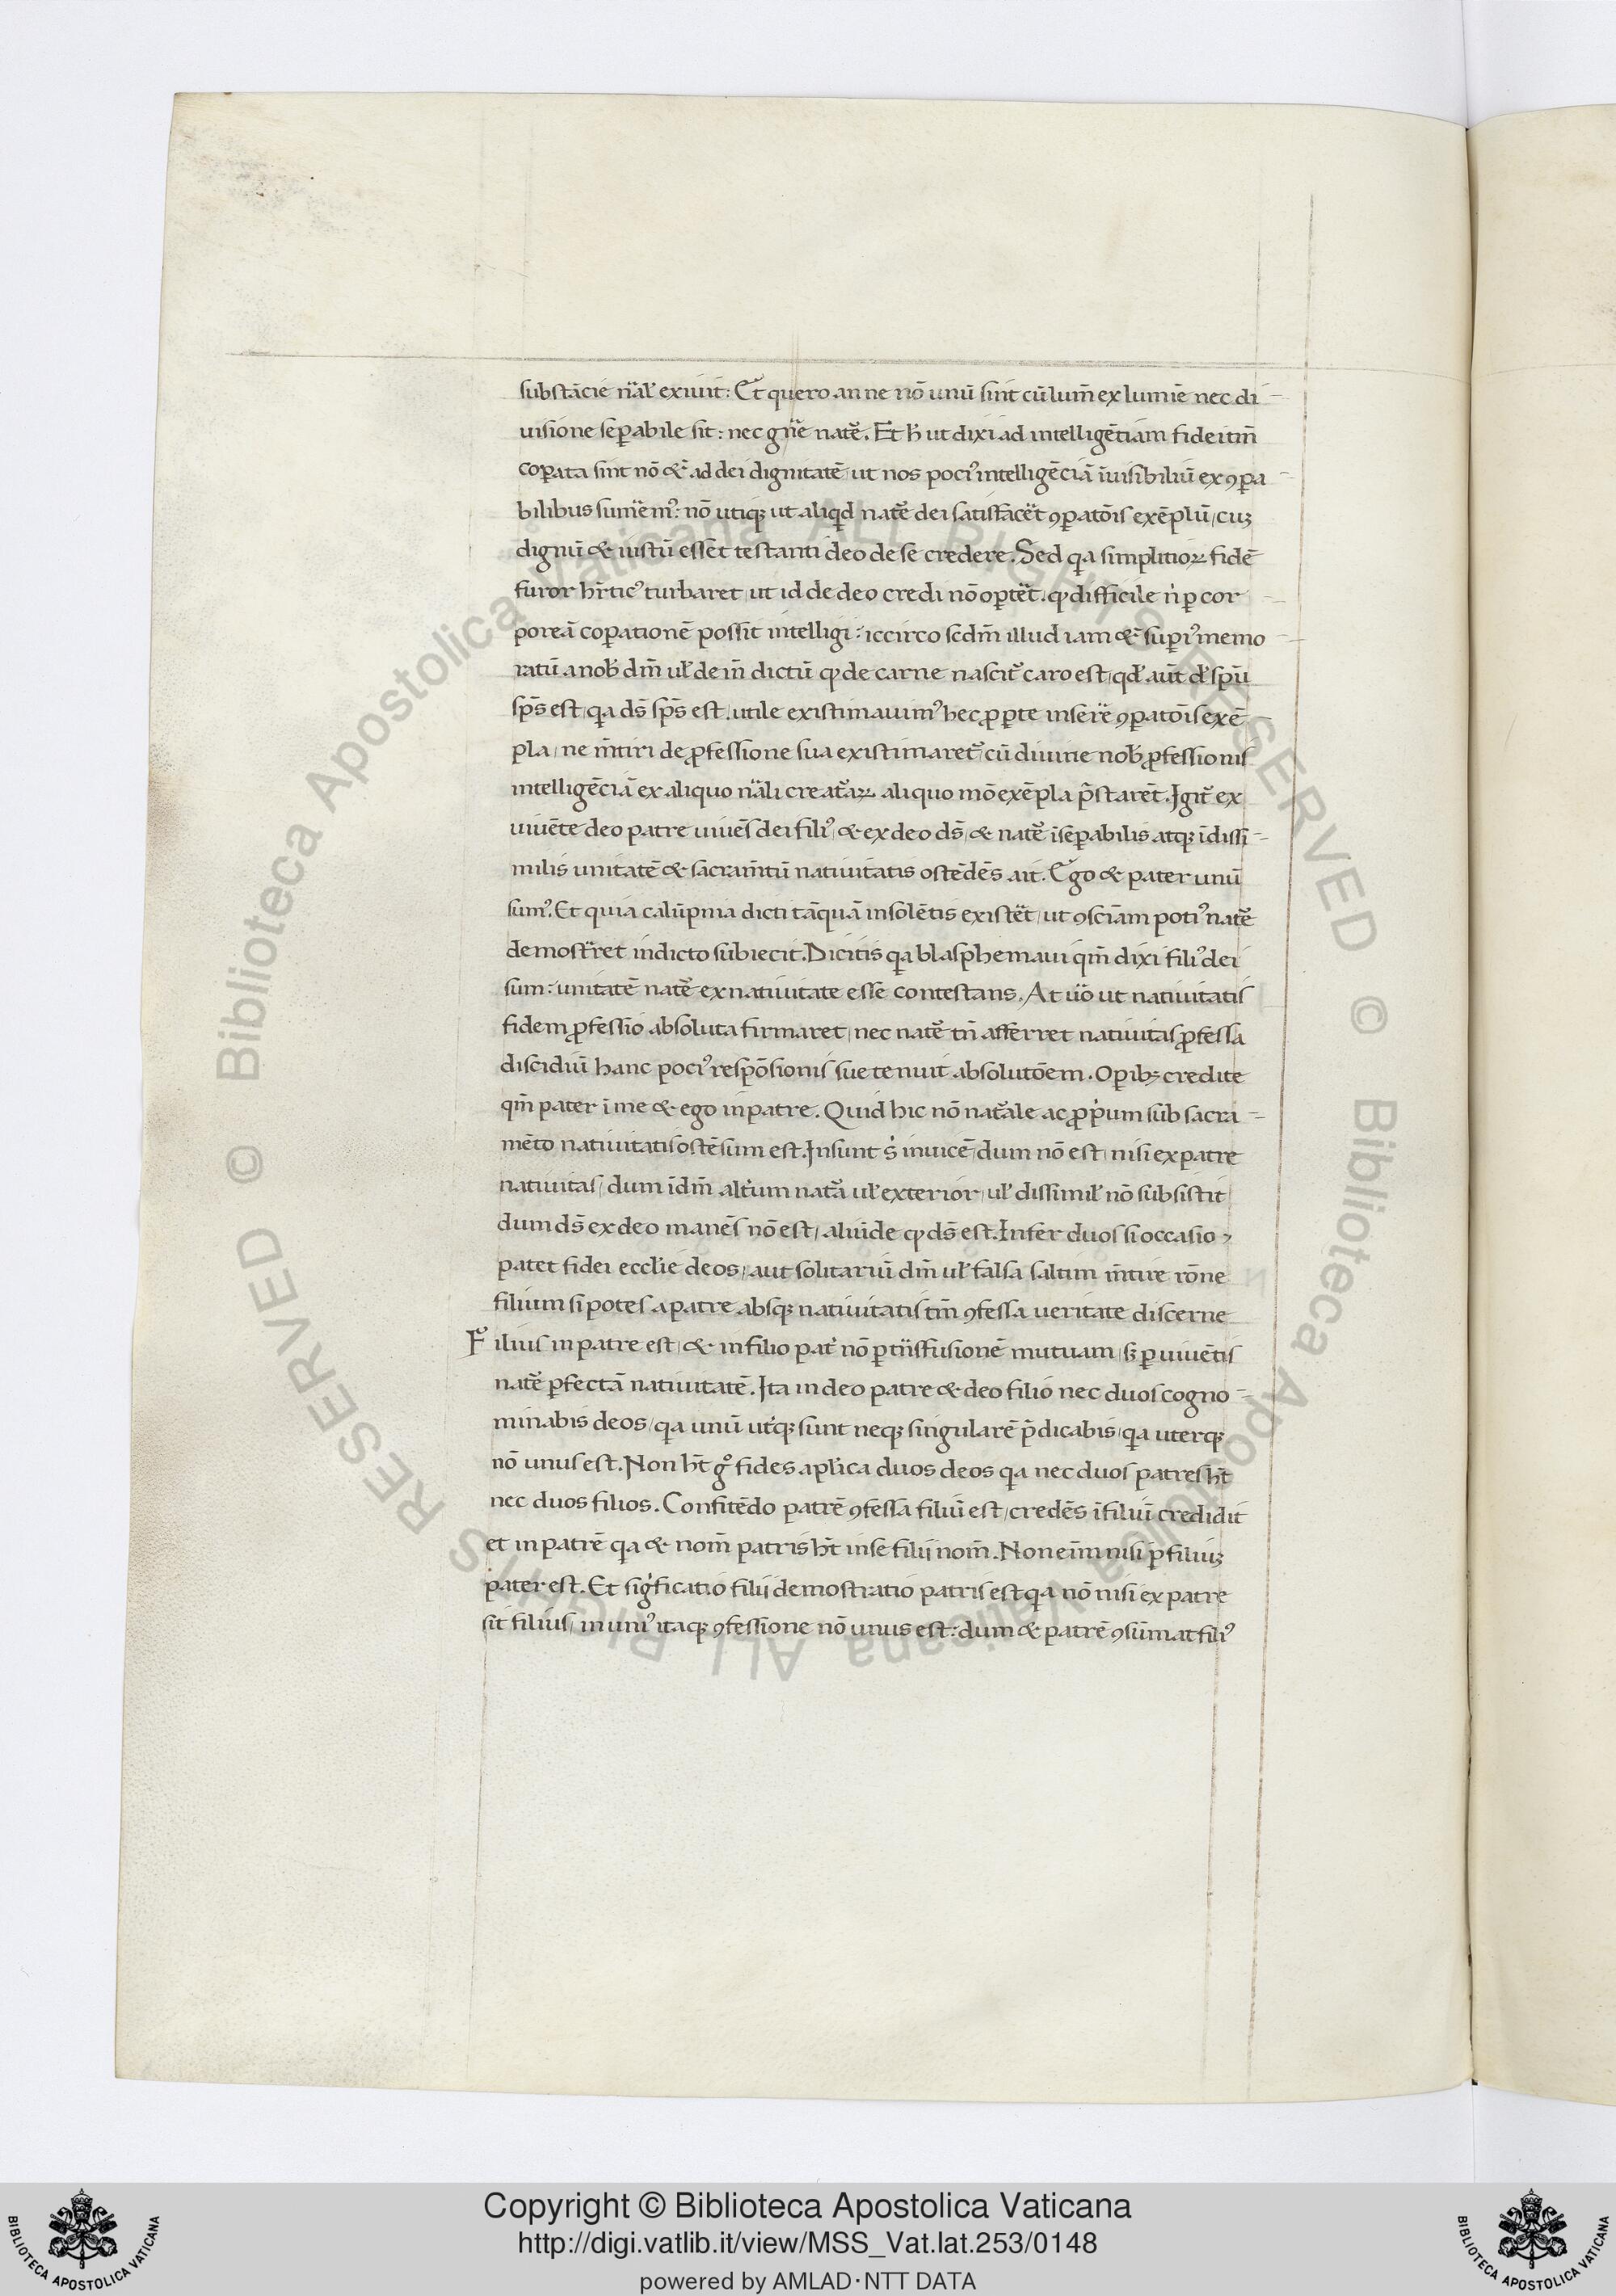 substācie nãlr exiuit: Et quero an ne nō unū sint cū lum̄ ex lumīe nec di-
uisione seꝑabile sit: nec gn̄e natē. Et h̄ ut dixi ad intelligētiam fidei tm̄
coꝑata sint nō &̄ ad dei dignitatē ut nos pociꝰ intelligēciā īuisibiliū ex ꝯꝑa-
bilibus sumēmꝰ: nō utiqꝫ ut aliqͥd natē dei satisfacēt ꝯꝑatōis exēplū, cuꝫ
dignū & iustū essēt testanti deo de se credere. Sed qͣa simplitioꝝ fidē
furor hr̄ticꝰ turbaret, ut id de deo credi nō oꝑtēt. ꝙ difficile n̄ ꝑ cor-
poreā coꝑationē possit intelligi: iccirco scdm̄ illud iam &̄ suꝑiꝰ memo-
ratū a nob̄ dm̄ ul̄ de m̄ dictū ꝙ de carne nascit̄ caro est, qd̄ aūt d̄ spū
sp̄s est, qͣa ds̄ sp̄s est. utile existimauimꝰ hec ꝓꝑte inserē ꝯꝑatōis exē-
pla, ne m̄tiri de ꝓfessione sua existimaret̄, cū diuine nob̄ ꝓfessionis
intelligēciā ex aliquo nāli creat̄aꝝ aliquo mō exēpla p̄starēt. Igit̄ ex
uiuēte deo patre uiuēs dei filiꝰ, & ex deo ds̄, & natē īseꝑabilis atqꝫ īdissi-
milis unitatē & sacram̄tū natiuitatis ostēdēs ait. Ego & pater unū
sumꝰ. Et quia calūpnia dicti tāquā insolētis existēt, ut ꝯsciām potiꝰ natē
demostrēt in dicto subiecit. Dicitis qͣa blasphemaui qm̄ dixi filiꝰ dei
sum: unitatē natē ex natiuitate esse contestans. At uō ut natiuitatis
fidem ꝓfessio absoluta firmaret, nec natē tn̄ afferret natiuitas ꝓfessa
discidiū hanc pociꝰ respōsionis sue tenuit absolutōem. Oꝑibꝫ credite
qm̄ pater ī me & ego in patre. Quid hic nō natāle ac ꝓpͥum sub sacra-
mēto natiuitatis ostēsum est. Insunt s̄ inuicē, dum nō est, nisi ex patre
natiuitas, dum īdm̄ altͥum natā ul̄ exterior, ul̄ dissimil̄ nō subsistit
dum ds̄ ex deo manēs nō est, aliūde ꝙ ds̄ est. Infer duos si occasio
patet fidei ecclīe deos, aut solitariū dm̄ ul̄ falsa saltim m̄tire rōne
filium si potes a patre absqꝫ natiuitatis tm̄ ꝯfessa ueritate discerne
Filius in patre est, & in filio patͥ nō ꝑ tn̄sfusionē mutuam, sꝫ ꝑ uiuētis
natē ꝑfectā natiuitatē. Ita in deo patre & deo filio nec duos cogno-
minabis deos, qͣa unū utͥqꝫ sunt neqꝫ singularē p̄dicabis, qͣa uterqꝫ
nō unus est. Non h̄t gͦ fides apl̄ica duos deos qͣa nec duos patres h̄t
nec duos filios. Confitēdo patrē ꝯfessa filiū est, credēs ī filiū credidit
et in patrē qͣa & nom̄ patris h̄t in se filii nom̄. Non eim̄ nisi ꝑ filiuꝫ
pater est. Et sigͥficatio filii demostratio patris est qͣa nō nisi ex patre
sit filius, in uniꝰ itaqꝫ ꝯfessione nō unus est: dum & patrē ꝯsūmat filiꝰ
© Biblioteca Apostolica Vaticana ALL RIGHTS RESERVED
© Biblioteca Apostolica Vaticana ALL RIGHTS RESERVED
Copyright © Biblioteca Apostolica Vaticana
http://digi.vatlib.it/view/MSS_Vat.lat.253/0148
powered by AMLAD·NTT DATA
BIBLIOTECA APOSTOLICA VATICANA
BIBLIOTECA APOSTOLICA VATICANA